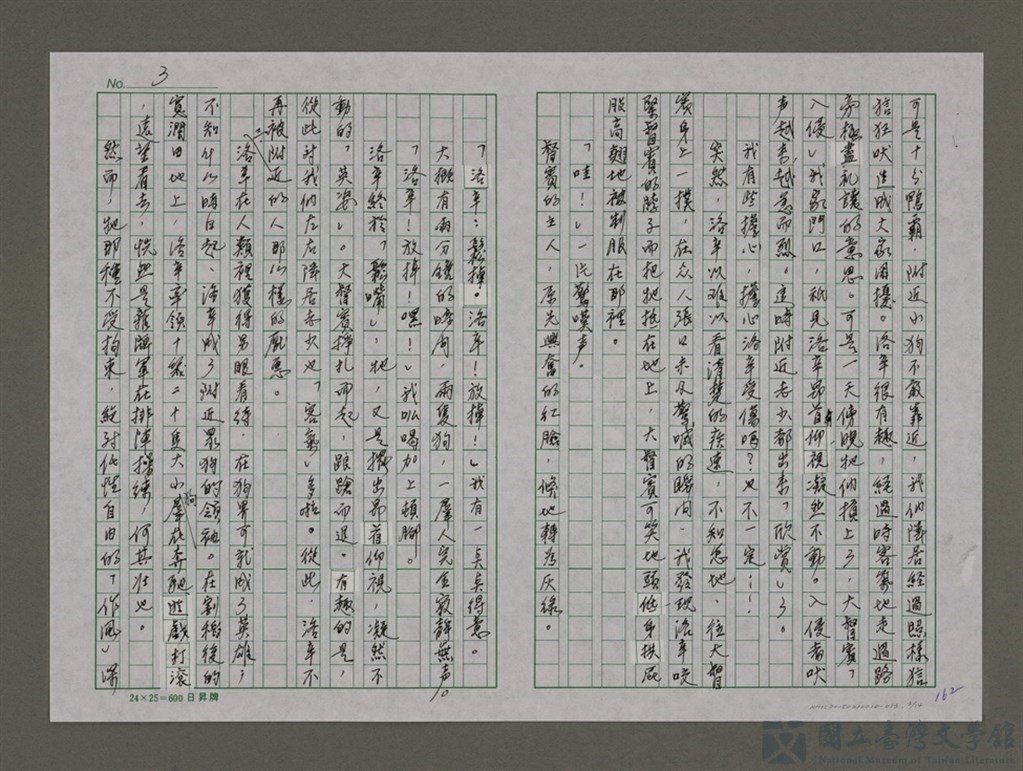 可是十分鴨霸，附近小狗不敢靠近，我們隣居經過照樣狺
狺狂吠造成大家困擾。洛辛很有趣，經過時客氣地走過路
旁極盡礼讓的意思。可是一天傍晚牠們槓上了，大督賓「
入侵」我家門口，祇見洛辛昂首仰視凝然不動。入侵者吠
声越來越急而烈。這時附近老少都出來「欣賞」了。
我有些擔心，擔心洛辛受傷嗎？也不一定！！
突然，洛辛以难以看清楚的疾速，不知怎地，往大督
賓身上一撲，在众人張口未及驚喊的瞬间，我發现洛辛咬
緊督賓的脖子而把牠按在地上，大督賓可笑地頭低身拱屁
股高翹地被制服在那裡。
「哇！」一片驚嘆声。
督賓的主人，原先興奮的红臉，倏地轉為灰綠。
No. 3
「洛辛：鬆掉。洛辛！放掉！」我有一点点得意。
大概有兩分鐘的時间，兩隻狗，一羣人完全寂靜無声。
「洛辛！放掉！嘿！」我吆喝加上頓腳。
洛辛終於「鬆嘴」，牠，又是擺出昂首仰視，凝然不
動的「英姿」。大督賓掙扎而起，踉蹌而退。有趣的是，
從此对我们左右隣居老少也「客氣」多啦。從此，洛辛不
再被附近的人那么樣的厭惡。
洛辛在人類裡獲得另眼看待，在狗界可就成了英雄，
不知什么時自起，洛辛成了附近眾狗的領袖。在割稻後的
寬濶田地上，洛辛率領十幾二十隻大小狗羣在奔馳嬉戲打滾
，遠望看去，恍然是雜牌軍在排陣操練，何其壯也。
然而，牠那種不受拘束，絕对任性自由的「作風」深
24×25=600 日昇牌
162
國立臺灣文学館
National Museum of Taiwan Literature